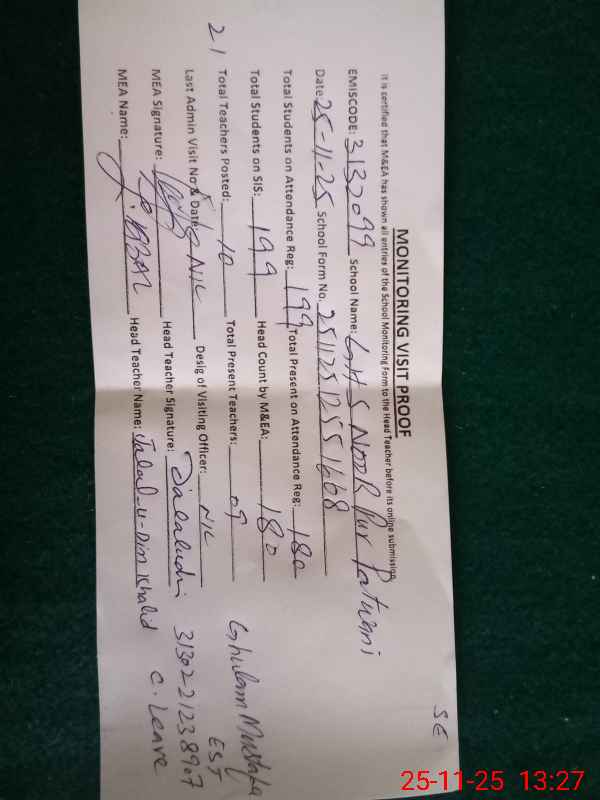 SE
MONITORING VISIT PROOF
It is certified that M&EA has shown all entries of the School Monitoring Form to the Head Teacher before its online submission
EMISCODE: 3137099 School Name: GHS NOOR Pur Patwani
Date: 25-11-25 School Form No. 251125125551668
Total Students on Attendance Reg: 199 Total Present on Attendance Reg: 180
Total Students on SIS: 199 Head Count by M&EA: 180
21 Total Teachers Posted: 10 Total Present Teachers: 09 Ghulam Mustafa
EST
Last Admin Visit No & Date: NIL Desig of Visiting Officer: NIL
MEA Signature: Head Teacher Signature: Jalaludin 3130221238907
MEA Name: Head Teacher Name: Jalal-u-Din Khalid C. Leave
25-11-25 13:27